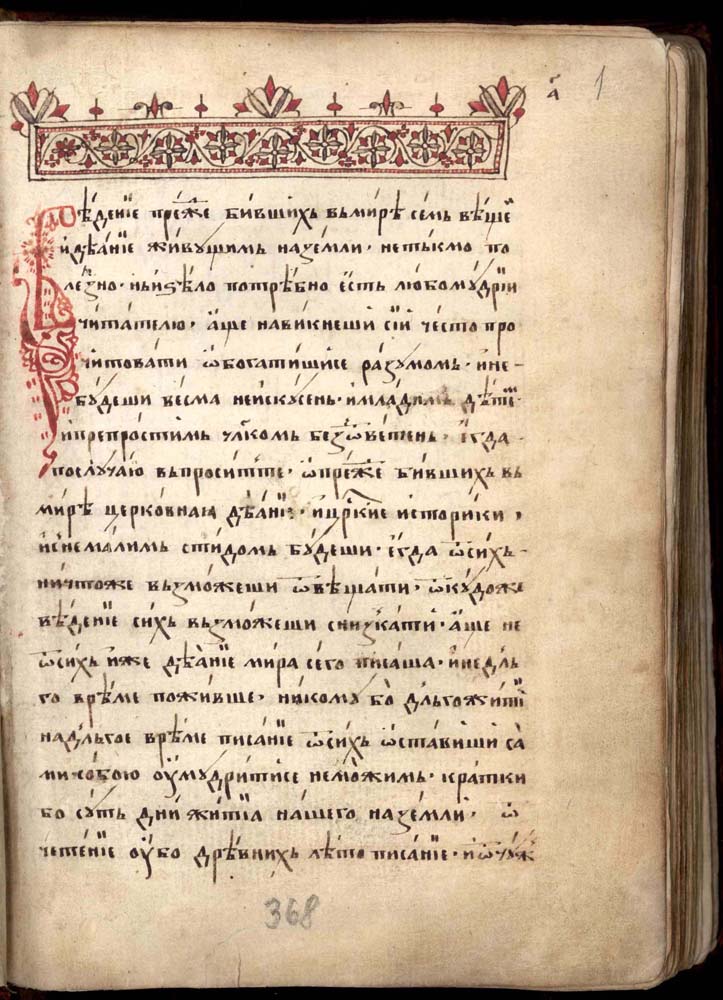 а҃ 1
Поѣдение преже бившихь вьмирѣ семь вѣщеі
и дѣание живущимь наземли· нетькмо по
лезно· нь и ѕѣло потрѣбно есть любомудріи
читателю· аще навикнеши сіи често про
читовати ѡбогатишисе разумомь· и не
будеши весма неискусень· и младимь дѣтеі
и препростимь члкомь без ѿветень· егда
послучаю вьпросите те· ѡ преже бившихь вь
мирѣ церковная дѣание· и цркие историки·
и с немалимь стидомь будеши· егда ѿ сихь
ничтоже вьзможеши ѿвѣщати· ѿкудоже
вѣдение сихь вьзможеши снизкати· аще не
ѿ сихь иже дѣание мира сего писаша· и недль
го врѣме поживше· никому бо дльгожитіі
на дльгое врѣме писание ѿ сихь ѡставиши са
ми собою оумудритисе неможимь· кратки
бо суть дни житіа нашего наземли· ѿ
четение оубо дрѣвнихь лѣто писание· и ѿ чуж
368